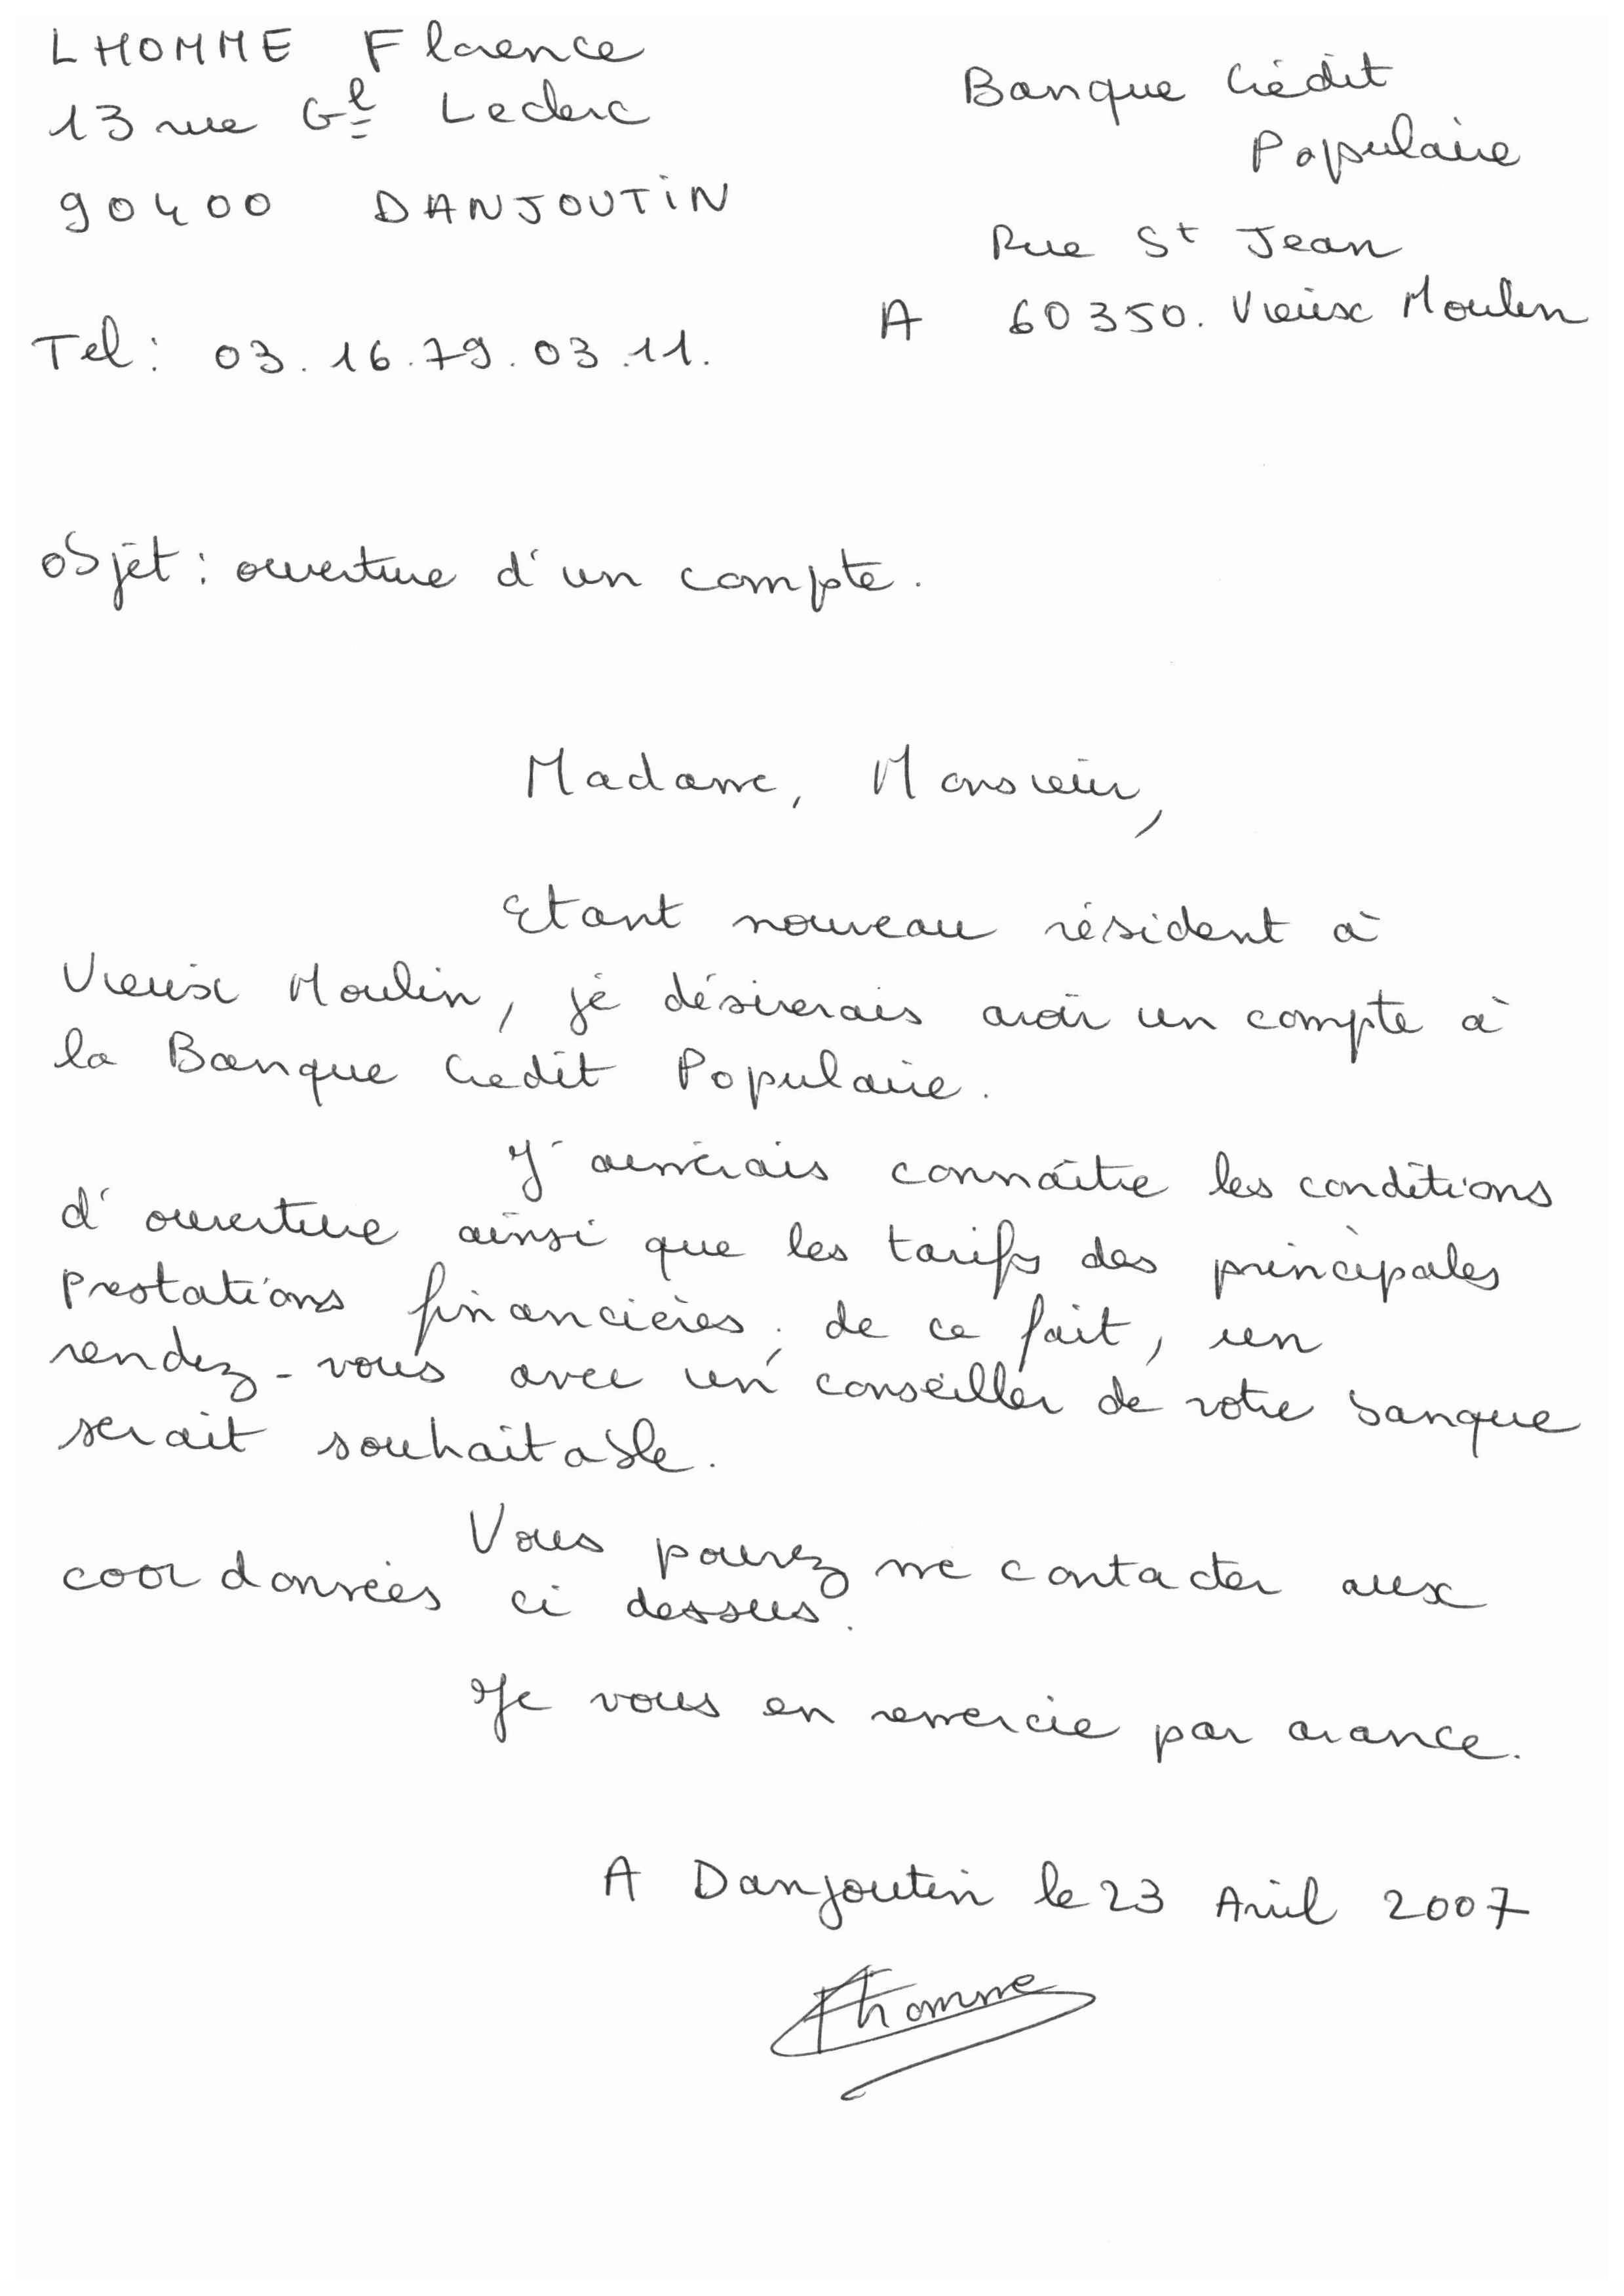 LHOMME Florence
13 rue Gl Leclerc
90400 DANJOUTIN
Tel : 03.16.79.03.11.
Banque Crédit
Populaire
Rue St Jean
A 60350. Vieux Moulin
Objet : ouverture d'un compte.
Madame, Monsieur,
Etant nouveau résident à
Vieux Moulin, je désirerais avoir un compte à
la Banque Credit Populaire.
J'aimerais connaître les conditions
d'ouverture ainsi que les tarifs des principales
prestations financières; de ce fait, un
rendez-vous avec un conseiller de votre banque
serait souhaitable.
Vous pouvez me contacter aux
coordonnées ci dessus.
Je vous en remercie par avance.
A Danjoutin le 23 Avril 2007
Lhomme